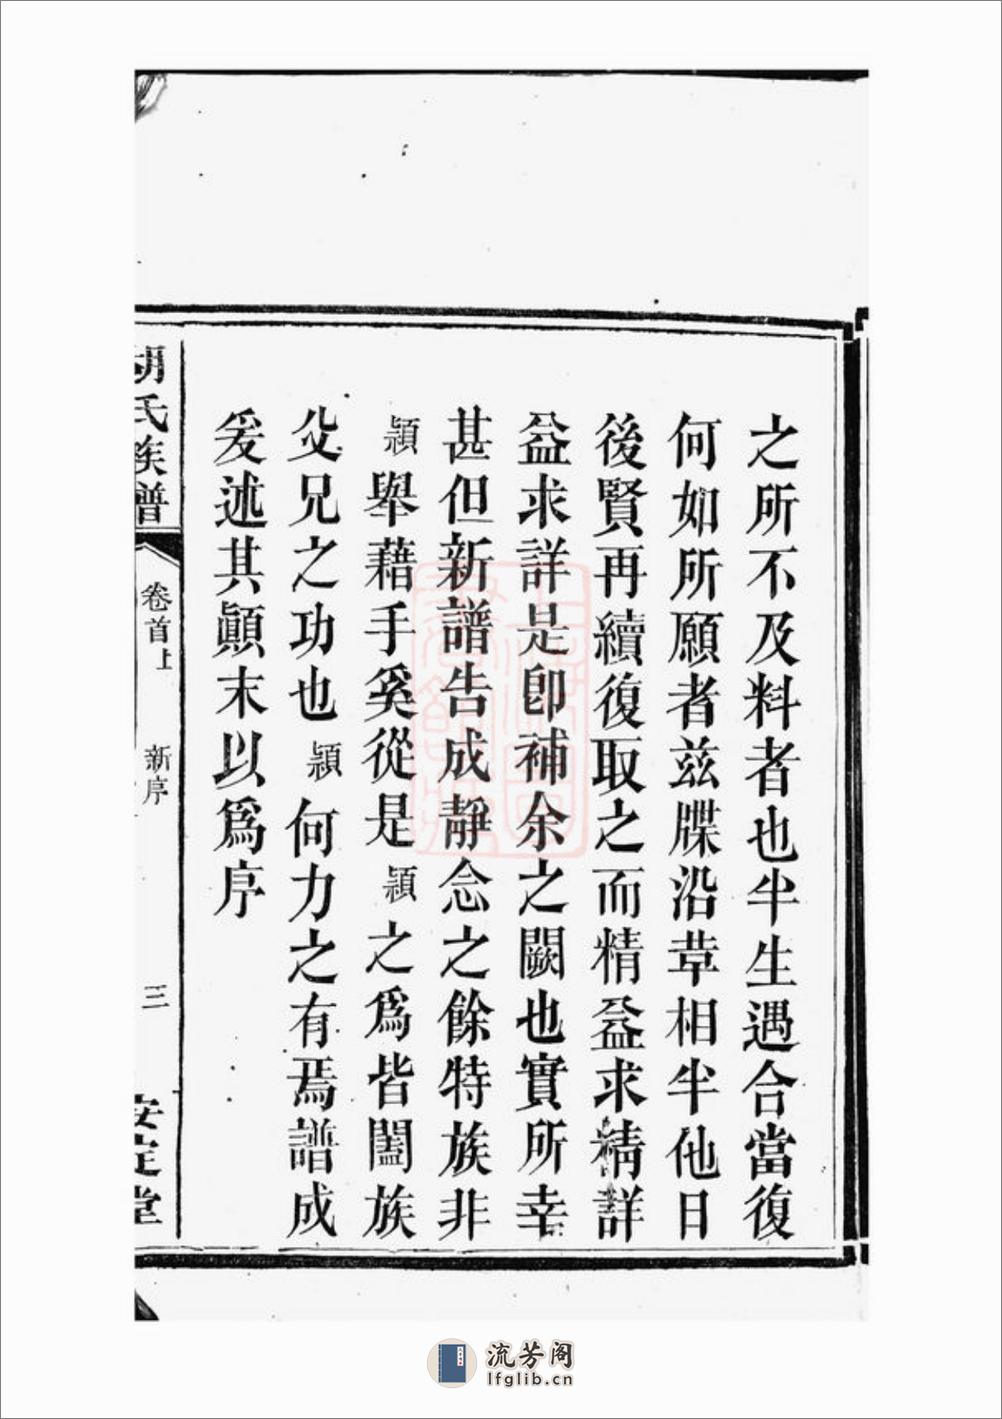 之所不及料者也半生遇合當復
何如所願者茲牒沿革相半他日
後賢再續復取之而精益求精詳
益求詳是卽補余之闕也實所幸
甚但新譜告成靜念之餘特族非
穎舉藉手奚從是穎之爲皆闔族
父兄之功也穎何力之有焉譜成
爰述其顚末以爲序
胡氏族譜
卷首上
新序
三
安定堂
流芳阁
lfglib.cn